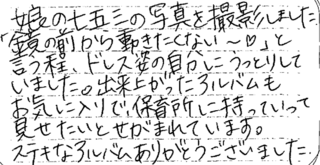 娘の七五三の写真を撮影しました
「鏡の前から動きたくない〜♡」と
言う程、ドレス姿の自分にうっとりして
いました。出来上がったアルバムも
お気に入りで、保育所に持っていって
見せたいとせがまれています。
ステキなアルバムありがとうございました。